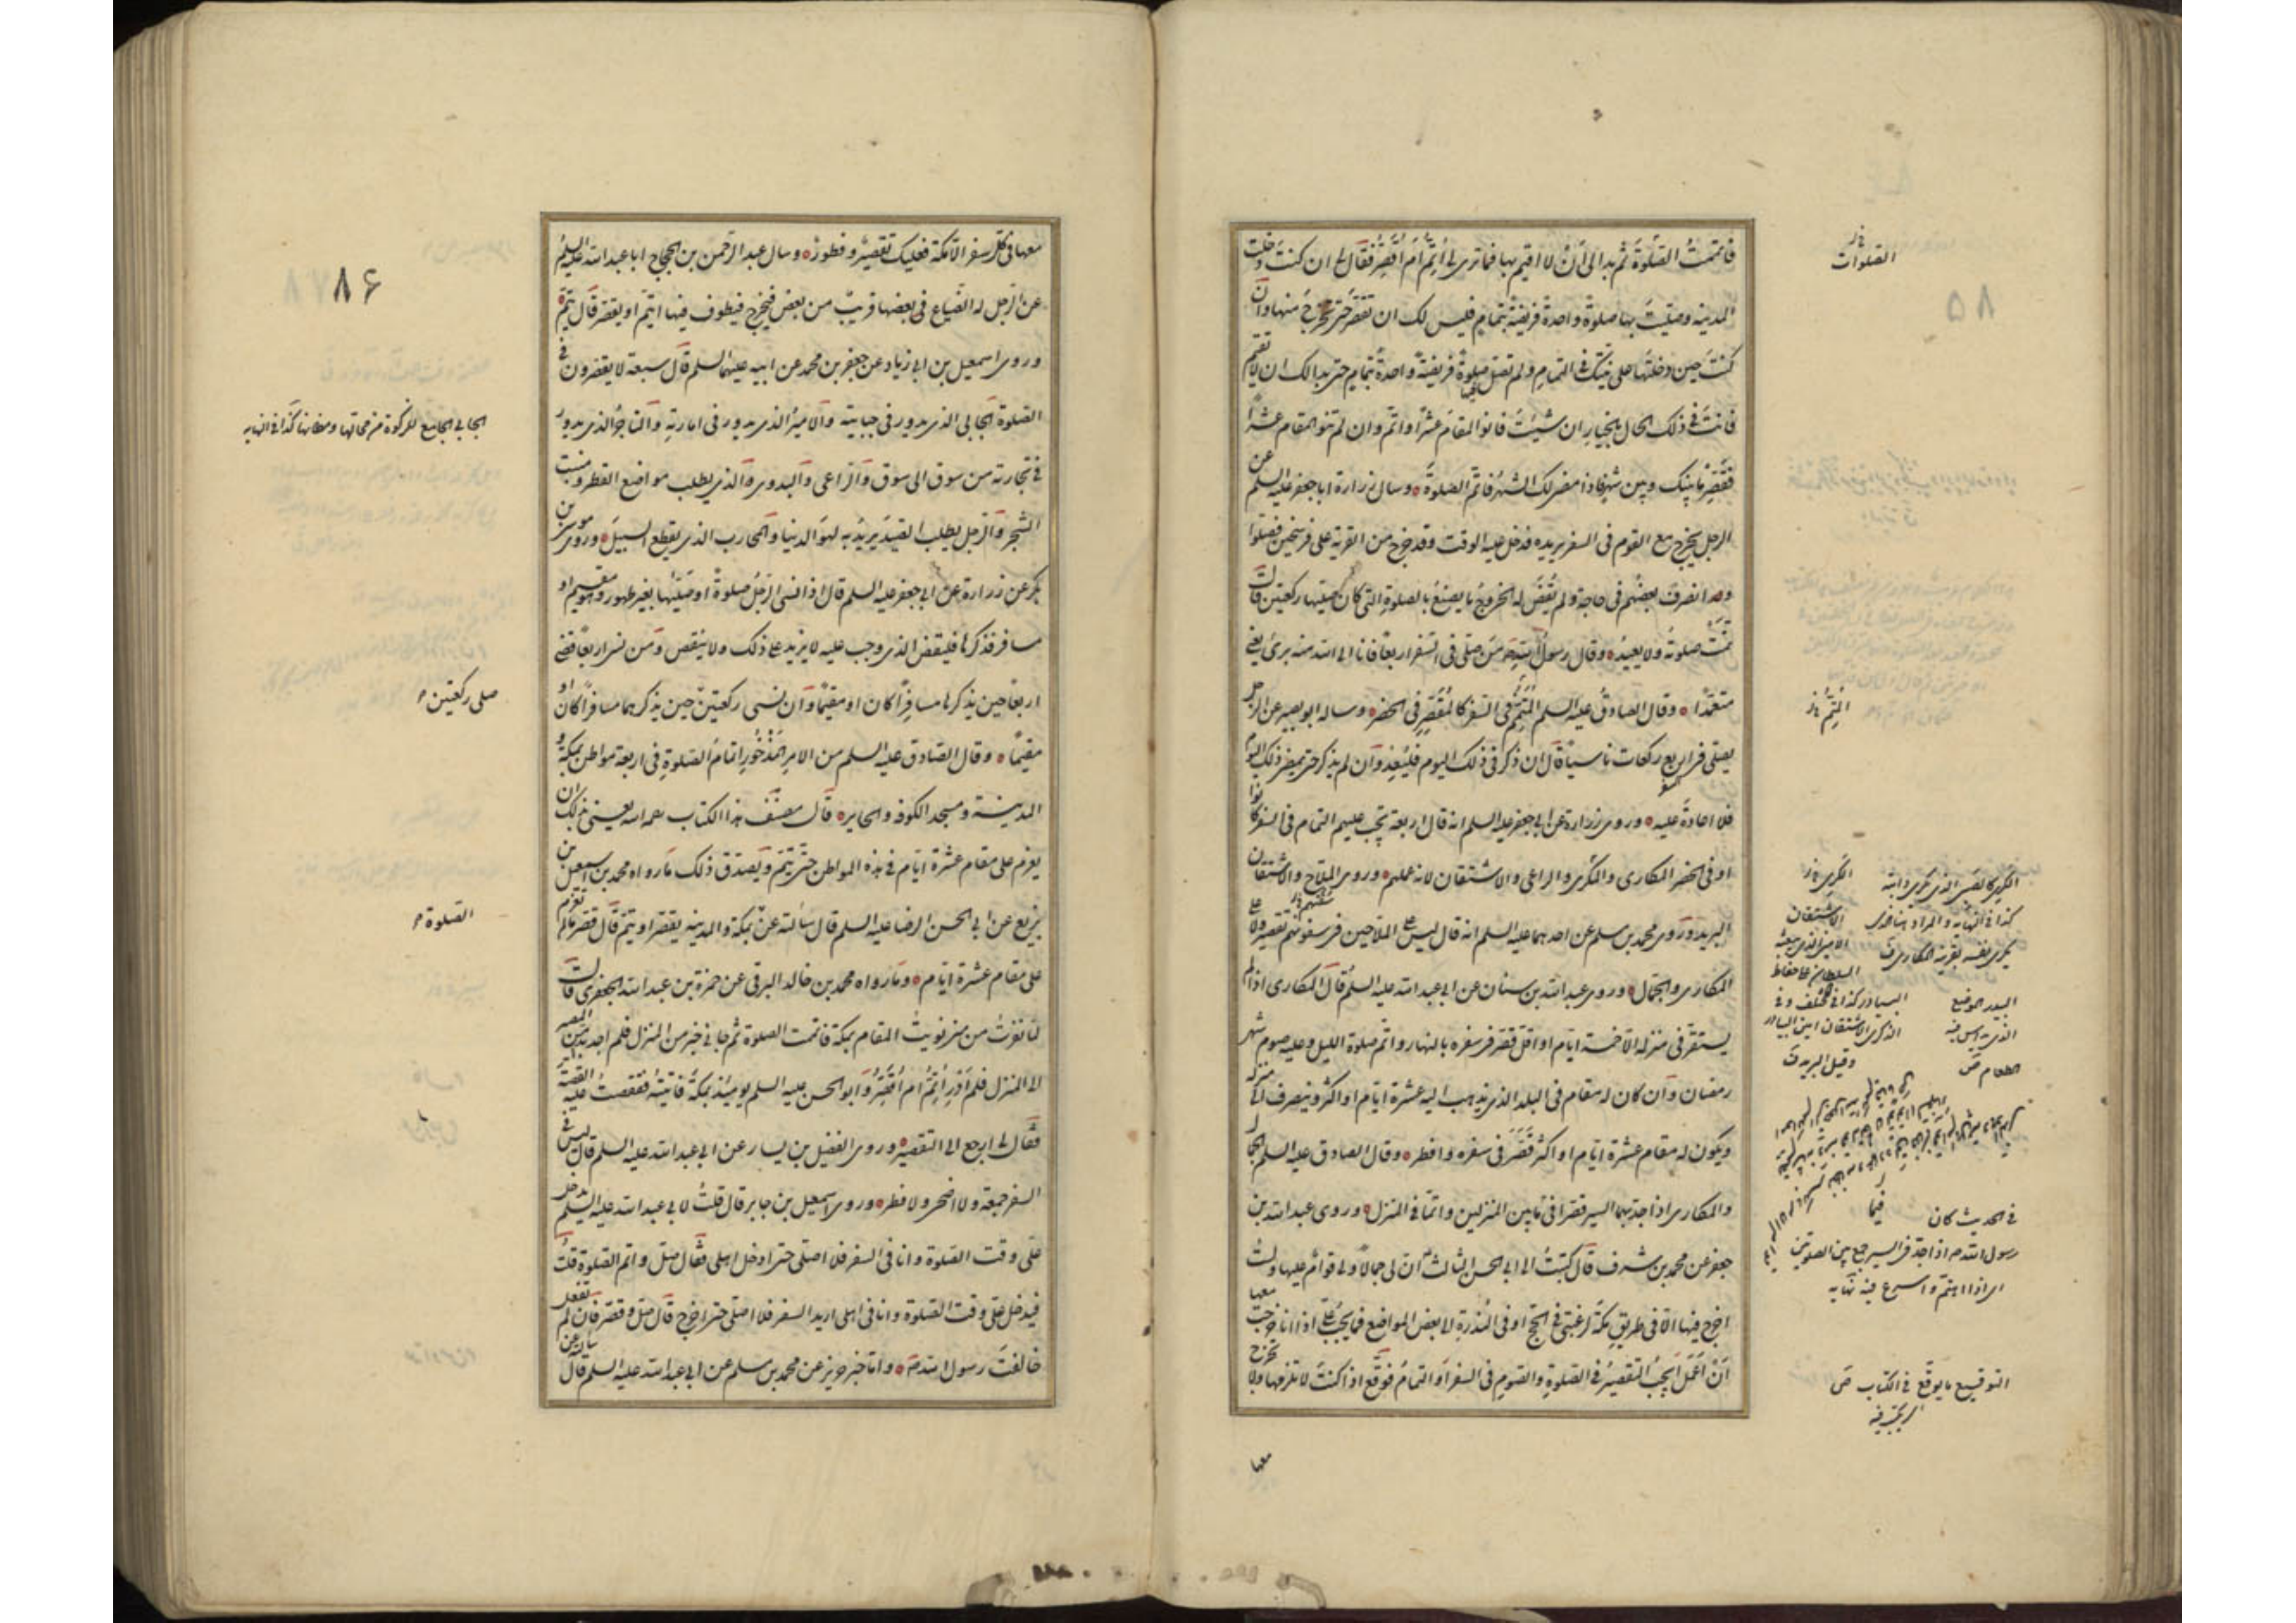 فاتممت الصلوة ثم بدا لى ان لا اقيم بها فما ترى لى اُتِمُّ أم أُقصّر فقال لى ان كنت دخلت
المدينة وصلّيت بها صلوة واحدة فريضة بتمام فليس لك ان تقصر حتى تخرج منها وان
كنت حين دخلتها على نيتك فى التمام ولم تصل فيها صلوة فريضة واحدة بتمام حتى بدا لك ان لا تقيم
فانت فى ذلك الحال بالخيار ان شئت فانو المقام عشرًا واتم وان لم تنو المقام عشرًا
فقصر ما بينك وبين شهر فاذا مضى لك الشهر فاتم الصلوة وسال زرارة ابا جعفر عليه السلم عن
الرجل يخرج مع القوم فى السفر يريده فدخل عليه الوقت وقد خرج من القرية على فرسخين فصلوا
وانصرف بعضهم فى حاجة ولم يُقض له الخروج ما يصنع بالصلوة التى كان صليها ركعتين قال
تمت صلوته ولا يعيد وقال رسول الله من صلى فى السفر اربعًا فانا الى الله منه برئ يعنى
متعمدًا وقال الصادق عليه السلم المُتِمّ فى السفر كالمُقَصِّر فى الحضر وساله ابو بصير عن الرجل
يصلى فى السفر اربع ركعات ناسيًا قال ان ذكر فى ذلك اليوم فليُعِد وان لم يذكر حتى يمضى ذلك اليوم
فلا اعادة عليه وروى زرارة عن ابى جعفر عليه السلم انه قال اربعة يجب عليهم التمام فى السفر كانوا
او فى الحضر المكارى والكرى والراعى والاشتقان لانه عملهم وروى الملاح والاشتقان
البريد وروى محمد بن مسلم عن احدهما عليه السلم انه قال ليس على الملاحين فى سفينتهم تقصير ولا على
المكارى والجمال وروى عبد الله بن سنان عن ابى عبد الله عليه السلم قال المكارى اذا لم
يستقر فى منزله الا خمسة ايام او اقل قصر فى سفره بالنهار واتم صلوة الليل وعليه صوم شهر
رمضان وان كان له مقام فى البلد الذى يذهب اليه عشرة ايام او اكثر وينصرف الى منزله
ويكون له مقام عشرة ايام او اكثر قصر فى سفره وافطر وقال الصادق عليه السلم الجمال
والمكارى اذا جد بهما السير قصرا فى ما بين المنزلين واتما فى المنزل وروى عبد الله بن
جعفر عن محمد بن شرف قال كتبت الى ابى الحسن الثالث ان لى جمالا ولى قوام عليها ولست
اخرج فيها الا فى طريق مكة لرغبتى فى الحج او فى الندرة الى بعض المواضع فما يجب على اذا انا خرجت معها
أن أعمل أيجب التقصير فى الصلوة والصوم فى السفر او التمام فوقّع اذا كنت لا تلزمها ولا تخرج
معها
الصلوات
٨٥
المُتِمّ
الكرى كالصبى الذى يكرى دابته
كذا فى النهاية والمراد هنا الذى
يكرى نفسه بقرينة المكارى
الاشتقان
الامين الذى يبعثه
السلطان على حفاظ
البيادر كذا فى المختلف وفى
الذكرى الاشتقان امين البيادر
وقيل البريد
البيدر الموضع
الذى يداس فيه
الطعام ص
فى الحديث كان
رسول الله اذا جد فى السير جمع بين الصلوتين
اى اذا اهتم واسرع فيه نهايه
التوقيع ما يوقّع فى الكتاب ص
معها فى كل سفر الا مكة فعليك تقصير وفطور وسال عبد الرحمن بن الحجاج ابا عبد الله عليه السلم
عن الرجل له الضياع فى بعضها قريب من بعض فيخرج فيطوف فيها ايتم او يقصر قال يتم
وروى اسمعيل بن ابى زياد عن جعفر بن محمد عن ابيه عليهما السلم قال سبعة لا يقصرون فى
الصلوة الجابى الذى يدور فى جبايته والامير الذى يدور فى امارته والتاجر الذى يدور
فى تجارته من سوق الى سوق والراعى والبدوى والذى يطلب مواضع القطر ومنبت
الشجر والرجل يطلب الصيد يريد به لهو الدنيا والمحارب الذى يقطع السبيل وروى موسى بن
بكر عن زرارة عن ابى جعفر عليه السلم قال اذا نسى الرجل صلوة او صليها بغير طهور وهو مقيم او
مسافر فذكرها فليقض الذى وجب عليه لا يزيد على ذلك ولا ينقص ومن نسى اربعًا قضى
اربعًا حين يذكرها مسافرًا كان او مقيمًا وان نسى ركعتين حين يذكرهما مسافرًا كان او
مقيمًا وقال الصادق عليه السلم من الامر المذخور اتمام الصلوة فى اربعة مواطن بمكة و
المدينة ومسجد الكوفة والحاير قال مصنف هذا الكتاب رحمه الله يعنى بذلك ان
يعزم على مقام عشرة ايام فى هذه المواطن حتى يتم ويصدق ذلك ما رواه محمد بن اسمعيل بن
بزيع عن ابى الحسن الرضا عليه السلم قال سالته عن بمكة والمدينة يقصر او يتم قال قصر ما لم تعزم
على مقام عشرة ايام وما رواه محمد بن خالد البرقى عن حمزة بن عبد الله الجعفرى قال
لما نفرت من منى نويت المقام بمكة فاتممت الصلوة ثم جانى خبر من المنزل فلم اجد بدا من المصير
الى المنزل فلم ادر اُتم ام اُقصّر وابو الحسن عليه السلم يومئذ بمكة فاتيته فقصصت عليه القصة
فقال لى ارجع الى التقصير وروى الفضيل بن يسار عن ابى عبد الله عليه السلم قال ليس فى
السفر جمعة ولا اضحى ولا فطر وروى اسمعيل بن جابر قال قلت لابى عبد الله عليه السلم يدخل
على وقت الصلوة وانا فى السفر فلا اصلى حتى ادخل اهلى فقال صل واتم الصلوة قلت
فيدخل على وقت الصلوة وانا فى اهلى اريد السفر فلا اصلى حتى اخرج قال صل وقصر فان لم تفعل
خالفت رسول الله وامّا خبر حريز عن محمد بن مسلم عن ابى عبد الله عليه السلم قال سالته عن
٨۶
الجابى الجامع للزكوة من محالها ومظانها كذا فى النهايه
صلى ركعتين
الصلوة